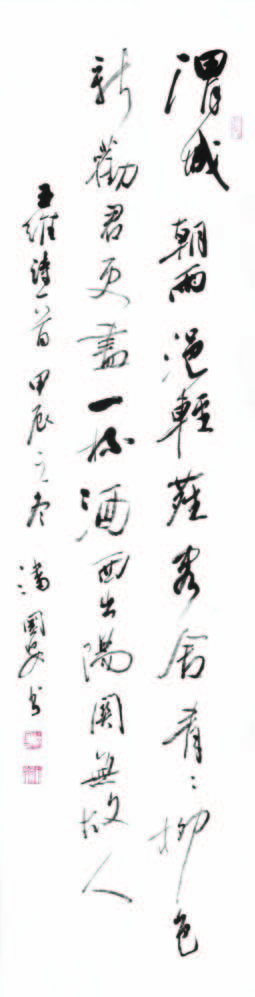 渭城朝雨浥輕塵客舍青ミ柳色
新勸君更盡一杯酒西出陽關無故人
王維詩一首甲辰之冬潘國安书